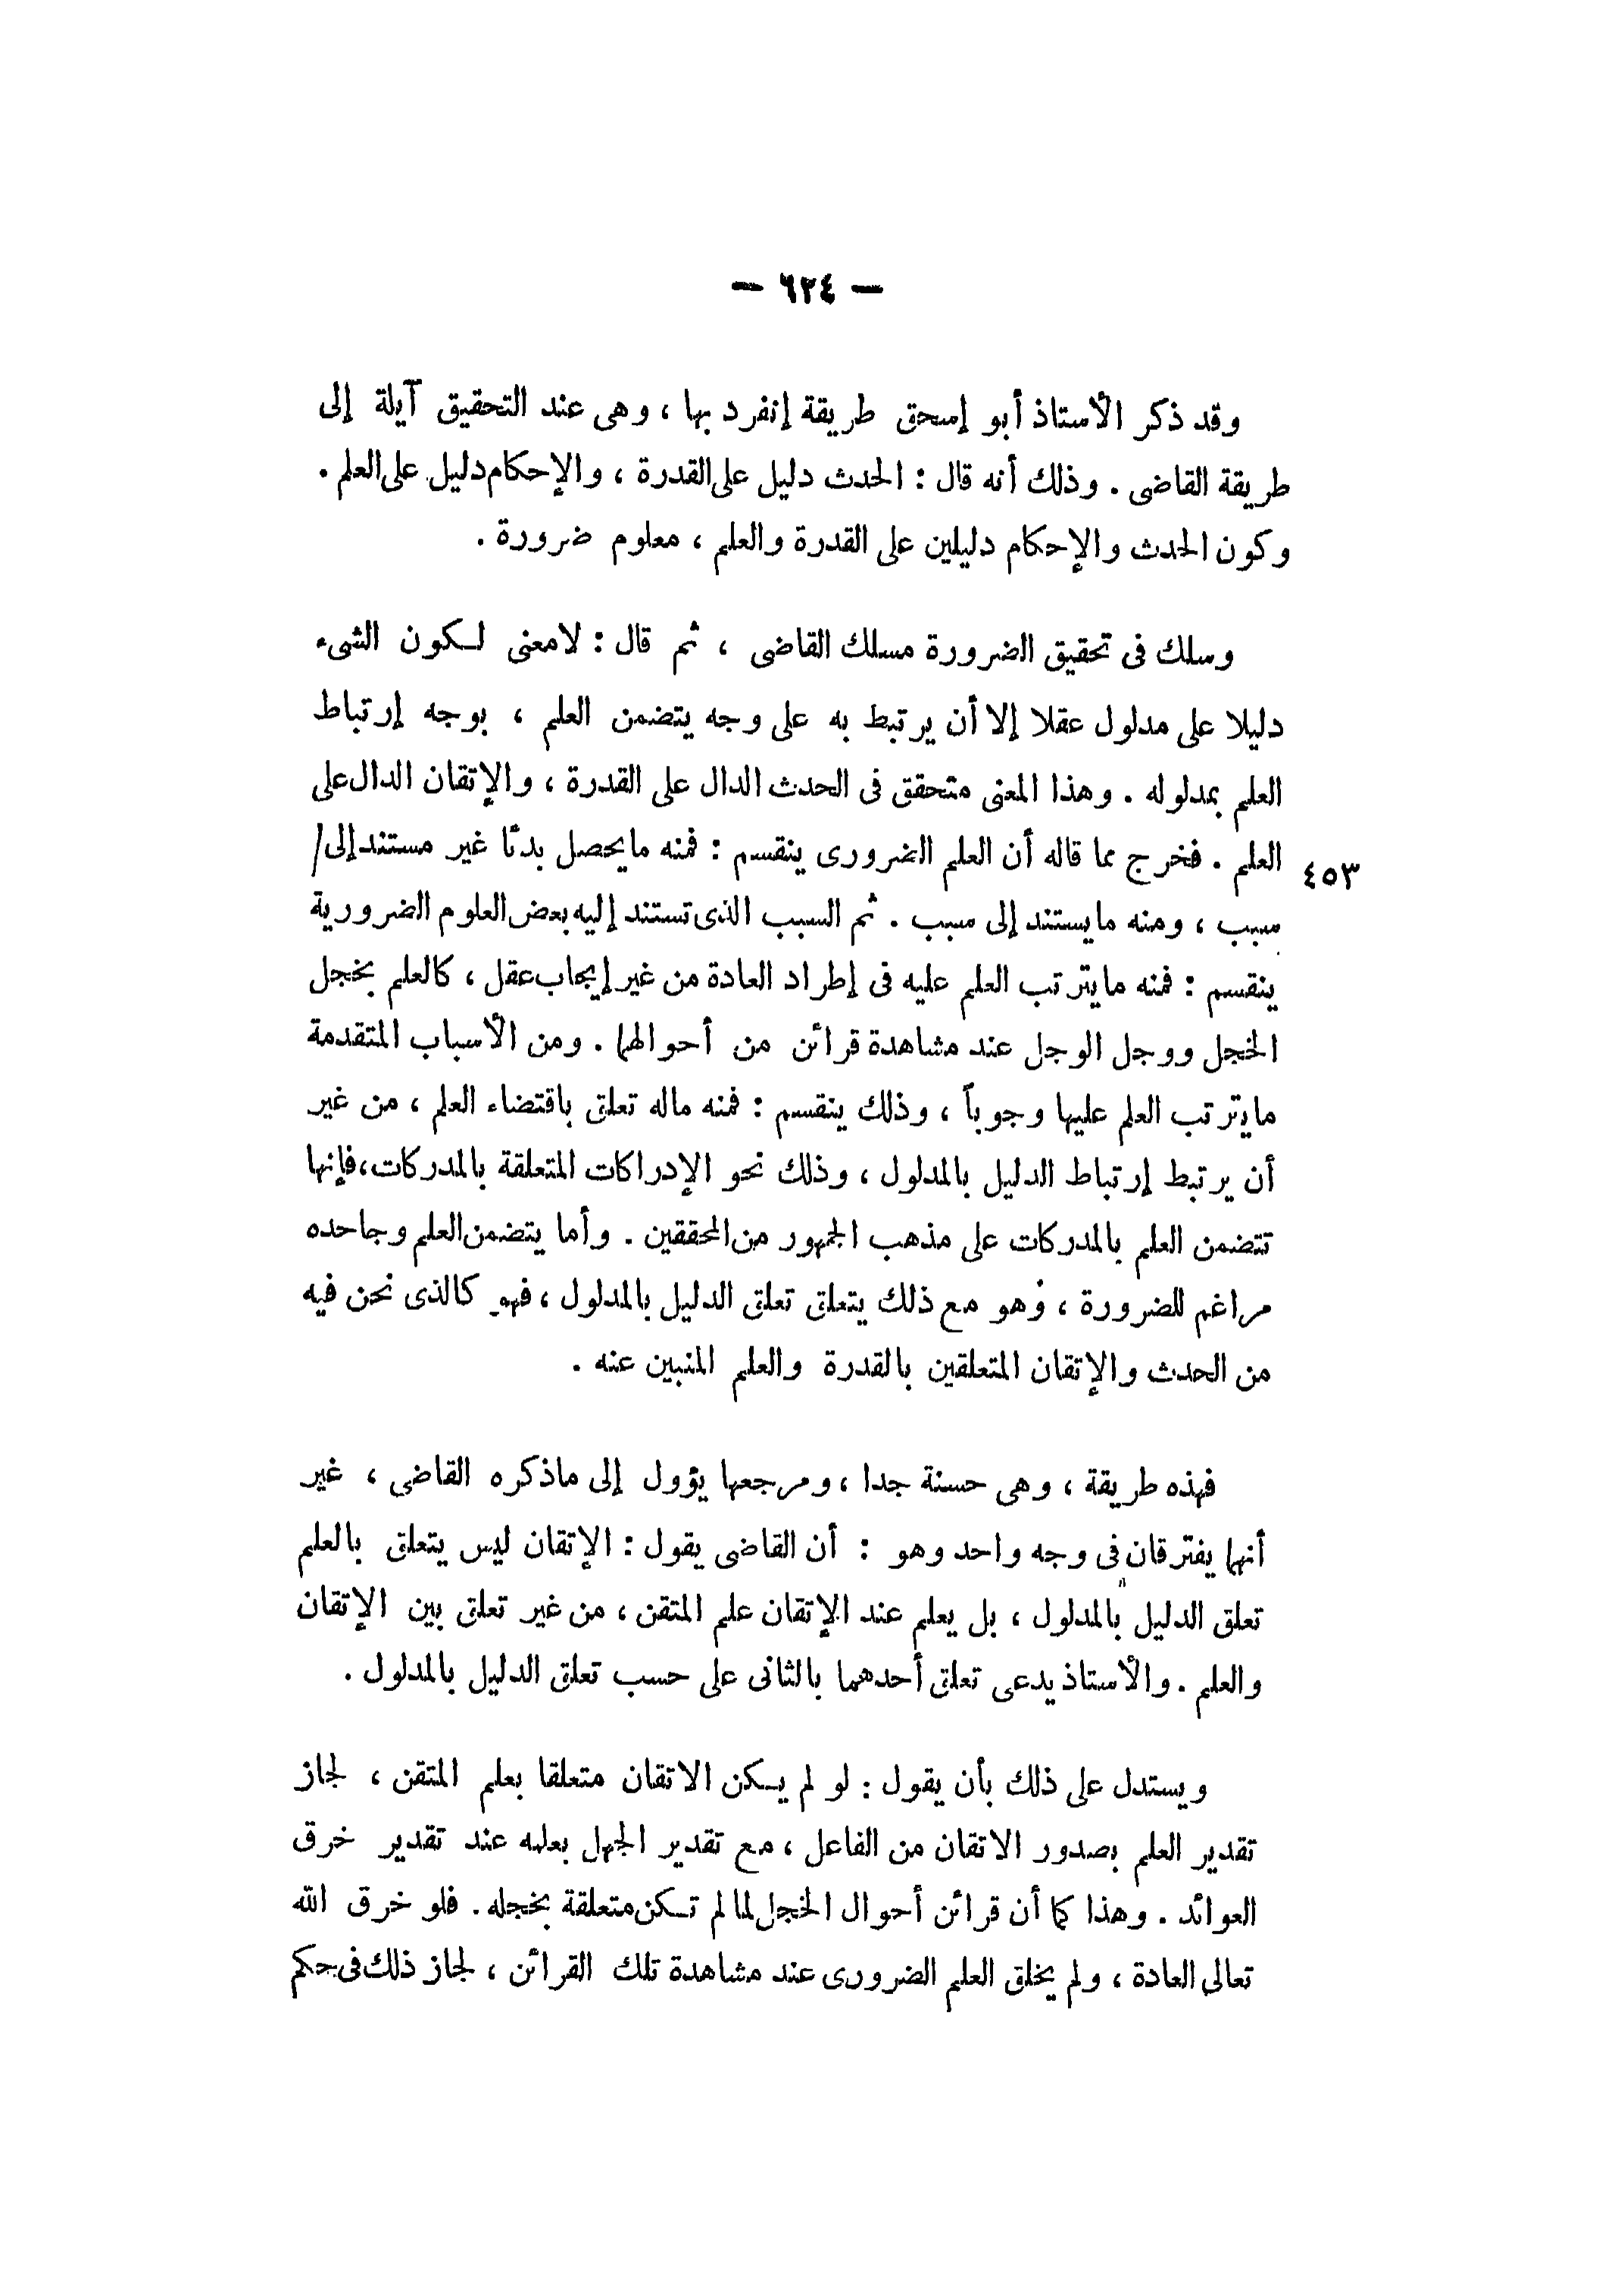 — ٦٢٤ —
وقد ذكر الأستاذ أبو إسحق طريقة إنفرد بها ، وهى عند التحقيق آيلة إلى
طريقة القاضى . وذلك أنه قال : الحدث دليل على القدرة ، والإحكام دليل على العلم .
وكون الحدث والإحكام دليلين على القدرة والعلم ، معلوم ضرورة .
وسلك فى تحقيق الضرورة مسلك القاضى ، ثم قال : لامعنى لكون الشىء
دليلا على مدلول عقلا إلا أن يرتبط به على وجه يتضمن العلم ، بوجه إرتباط
العلم بمدلوله . وهذا المعنى متحقق فى الحدث الدال على القدرة ، والإتقان الدال على
العلم . فخرج مما قاله أن العلم الضرورى ينقسم : فمنه مايحصل بدئا غير مستند إلى/ ٤٥٣
سبب ، ومنه مايستند إلى سبب . ثم السبب الذى تستند إليه بعض العلوم الضرورية
ينقسم : فمنه مايترتب العلم عليه فى إطراد العادة من غير إيجاب عقل ، كالعلم بخجل
الخجل ووجل الوجل عند مشاهدة قرائن من أحوالهما . ومن الأسباب المتقدمة
مايترتب العلم عليها وجوباً ، وذلك ينقسم : فمنه ماله تعلق باقتضاء العلم ، من غير
أن يرتبط إرتباط الدليل بالمدلول ، وذلك نحو الإدراكات المتعلقة بالمدركات ، فإنها
تتضمن العلم بالمدركات على مذهب الجمهور من المحققين . وأما يتضمن العلم وجاحده
مراغم للضرورة ، وهو مع ذلك يتعلق تعلق الدليل بالمدلول ، فهو كالذى نحن فيه
من الحدث والإتقان المتعلقين بالقدرة والعلم المنبين عنه .
فهذه طريقة ، وهى حسنة جدا ، ومرجعها يؤول إلى ماذكره القاضى ، غير
أنهما يفترقان فى وجه واحد وهو : أن القاضى يقول : الإتقان ليس يتعلق بالعلم
تعلق الدليل بالمدلول ، بل يعلم عند الإتقان علم المتقن ، من غير تعلق بين الإتقان
والعلم . والأستاذ يدعى تعلق أحدهما بالثانى على حسب تعلق الدليل بالمدلول .
ويستدل على ذلك بأن يقول : لو لم يكن الاتقان متعلقا بعلم المتقن ، لجاز
تقدير العلم بصدور الاتقان من الفاعل ، مع تقدير الجهل بعلمه عند تقدير خرق
العوائد . وهذا كما أن قرائن أحوال الخجل لما لم تكن متعلقة بخجله . فلو خرق الله
تعالى العادة ، ولم يخلق العلم الضرورى عند مشاهدة تلك القرائن ، لجاز ذلك فى حكم